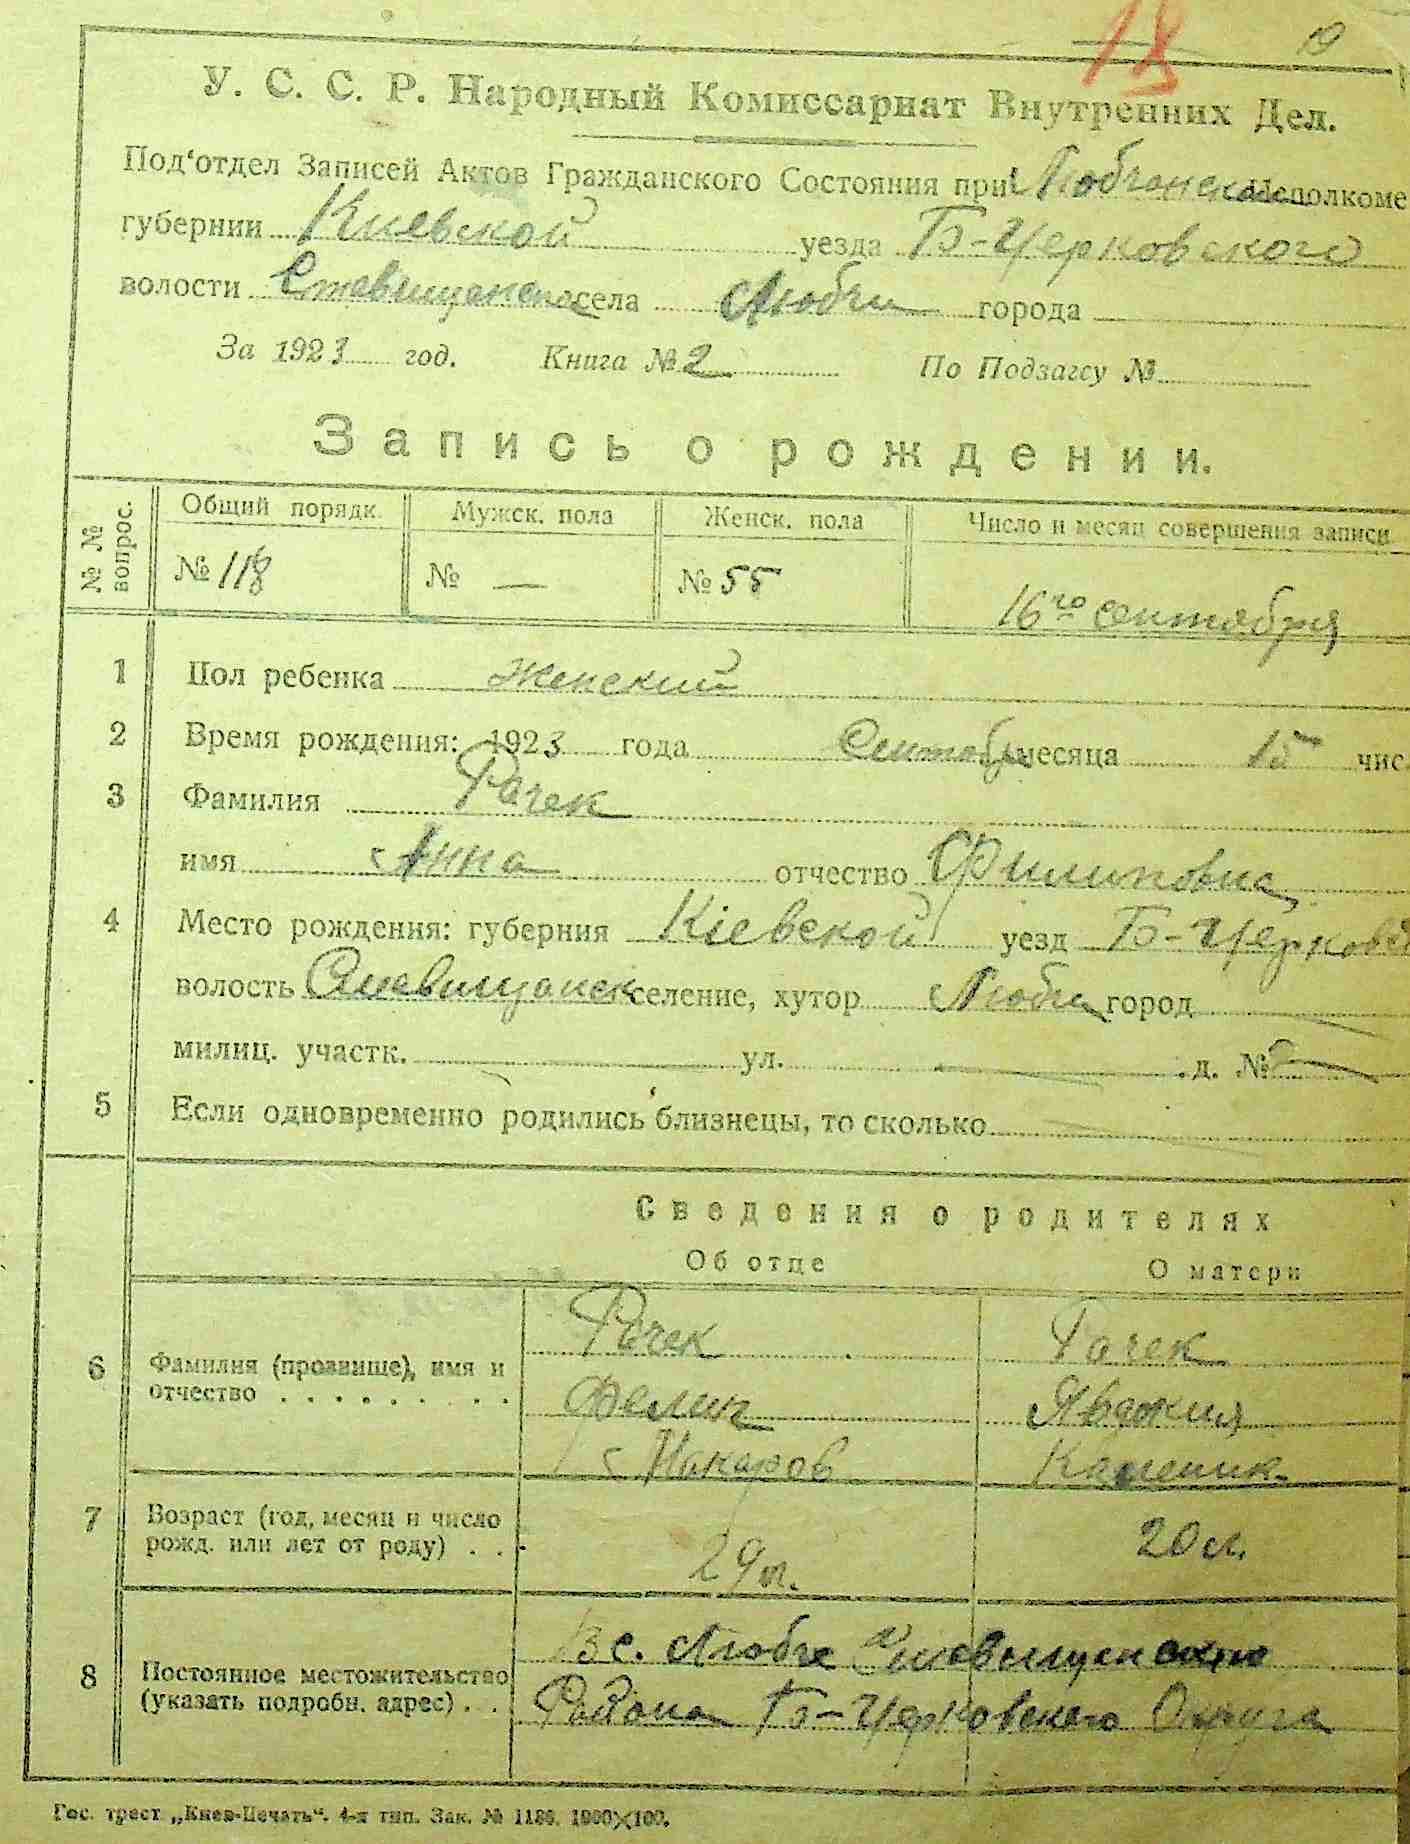 18 19
У. С. С. Р. Народный Комиссариат Внутренних Дел.
Под'отдел Записей Актов Гражданского Состояния при Исполкоме
губернии Киевской уезда Б-Церковского
волости села Любчи города
За 1923 год. Книга № 2 По Подзагсу №
Запись о рождении.
№ № вопрос. Общий порядк. Мужск. пола Женск. пола Число и месяц совершения записи
№ 118 № — № 55 16го сентября
1 Пол ребенка женский
2 Время рождения: 1923 года месяца 15 чис.
3 Фамилия Рачек
имя Анна отчество Филиповна
4 Место рождения: губерния Кіевской уезд Б-Церковс
волость селение, хутор город
милиц. участк. ул. д. №
5 Если одновременно родились близнецы, то сколько
Сведения о родителях
Об отце О матери
6 Фамилия (прозвище), имя и Рачек Рачек
отчество . . . . . . . . . Явдокия
Макаров
7 Возраст (год, месяц и число
рожд. или лет от роду) . . . 29 л. 20 л.
8 Постоянное местожительство В с. Любче
(указать подробн. адрес) . . . Района Б-Церковского Округа
Гос. трест „Киев-Печать“. 4-я тип. Зак. № 1186. 1000×100.